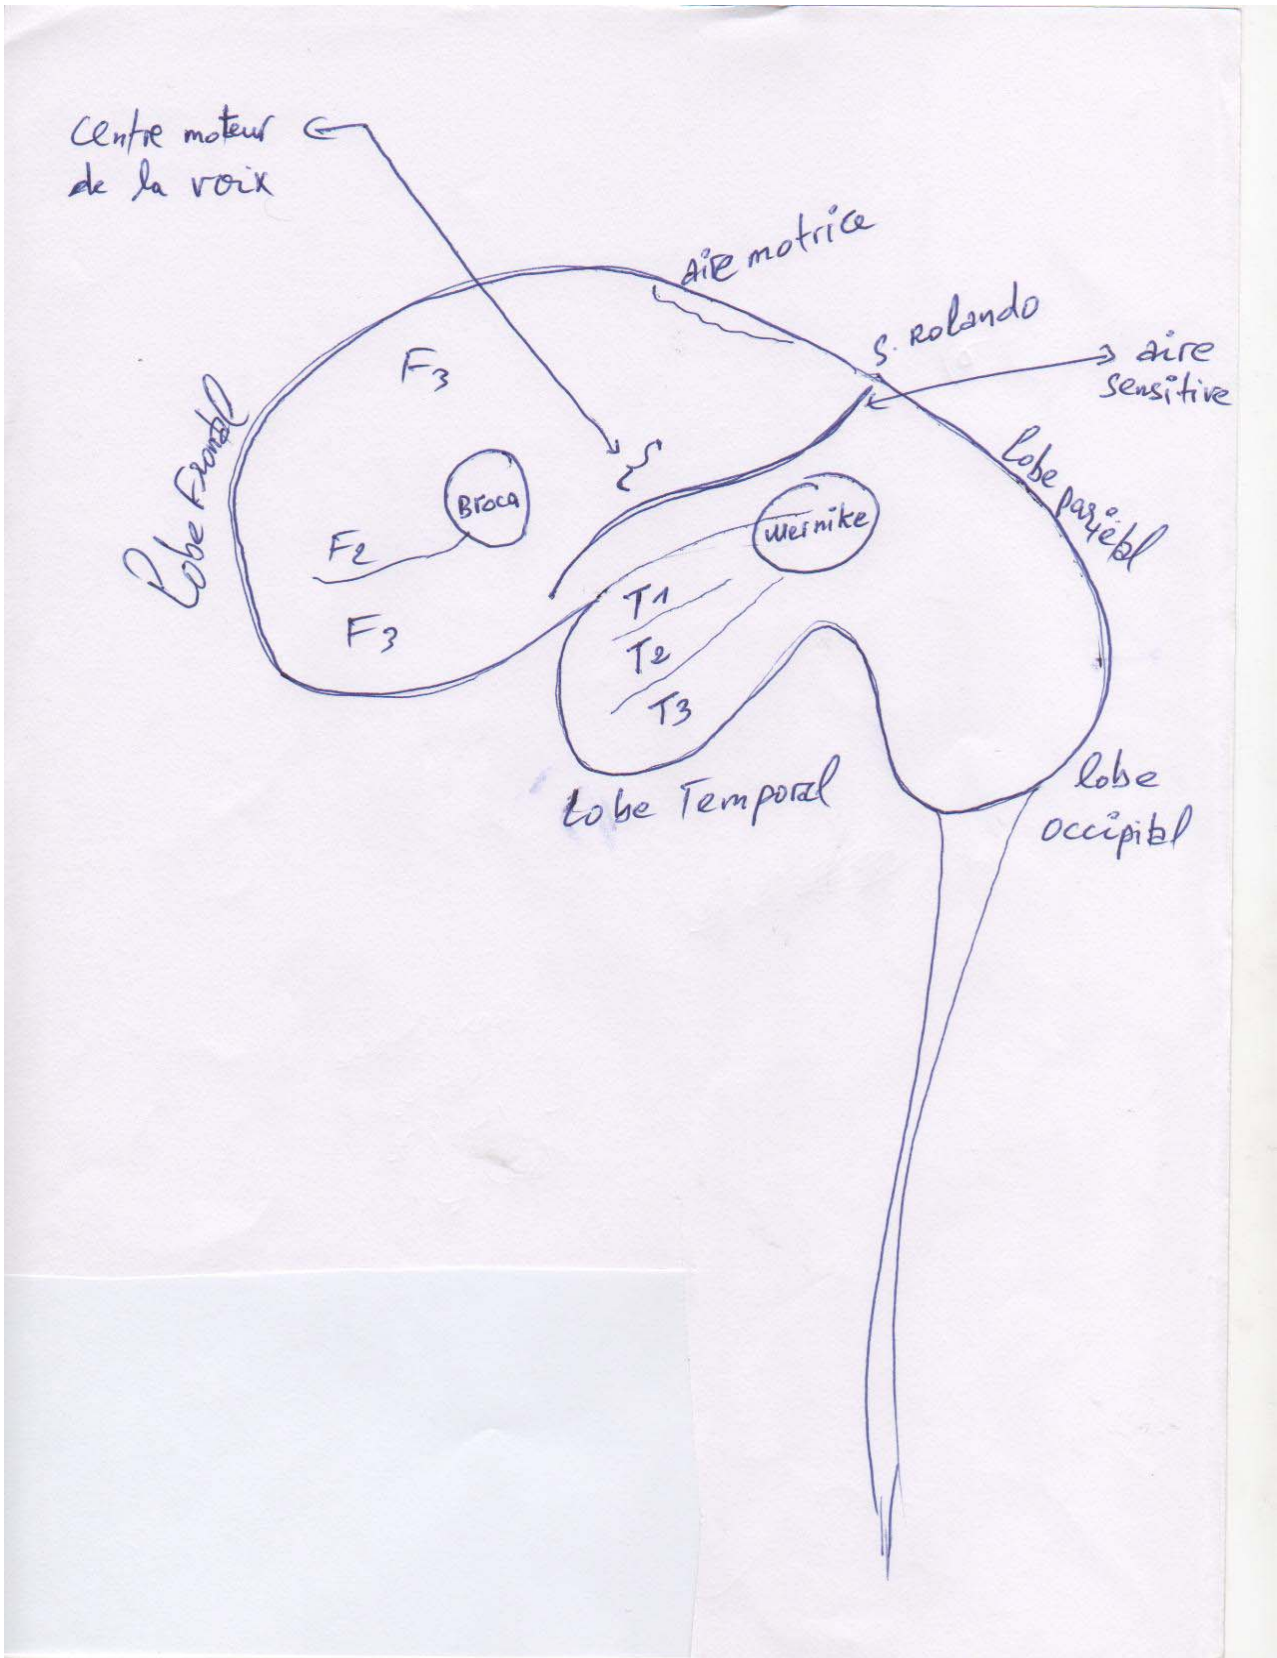 Centre moteur
de la voix
aire motrice
S. Rolando
aire
sensitive
F3
Lobe Frontal
Broca
Wernike
lobe pariétal
F2
F3
T1
T2
T3
Lobe Temporal
lobe
occipital